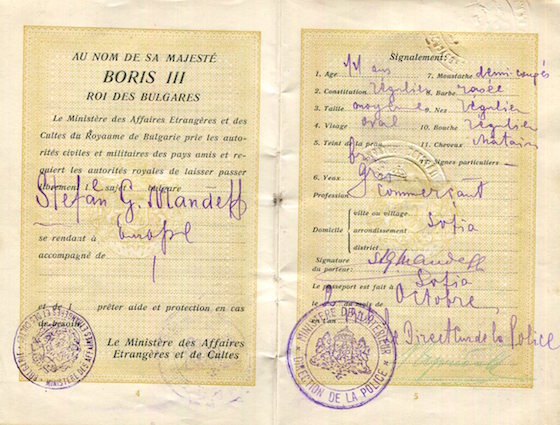 AU NOM DE SA MAJESTÉ
BORIS III
ROI DES BULGARES
Le Ministère des Affaires Etrangères et des
Cultes du Royaume de Bulgarie prie les auto-
rités civiles et militaires des pays amis et re-
quiert les autorités royales de laisser passer
librement l sujet bulgare
Stefan G. Mandeff
se rendant à Europe
accompagné de
et de l prêter aide et protection en cas
de besoin.
Le Ministère des Affaires
Etrangères et de Cultes
4
Signalement:
1. Age ans
2. Constitution régulier
3. Taille moyenne
4. Visage oval
5. Teint de la peau
6. Yeux gris
7. Moustache demi-coupés
8. Barbe rasée
9. Nez régulier
10. Bouche régulier
11. Cheveux
Signes particuliers —
Profession commerçant
Domicile
ville ou village Sofia
arrondissement
district
Signature
du porteur: StGMandeff
Le passeport est fait à Sofia
le 2 du mois de Octobre
de l'an
Le Directeur de la Police
MINISTÈRE DE L'INTERIEUR
DIRECTION DE LA POLICE
5